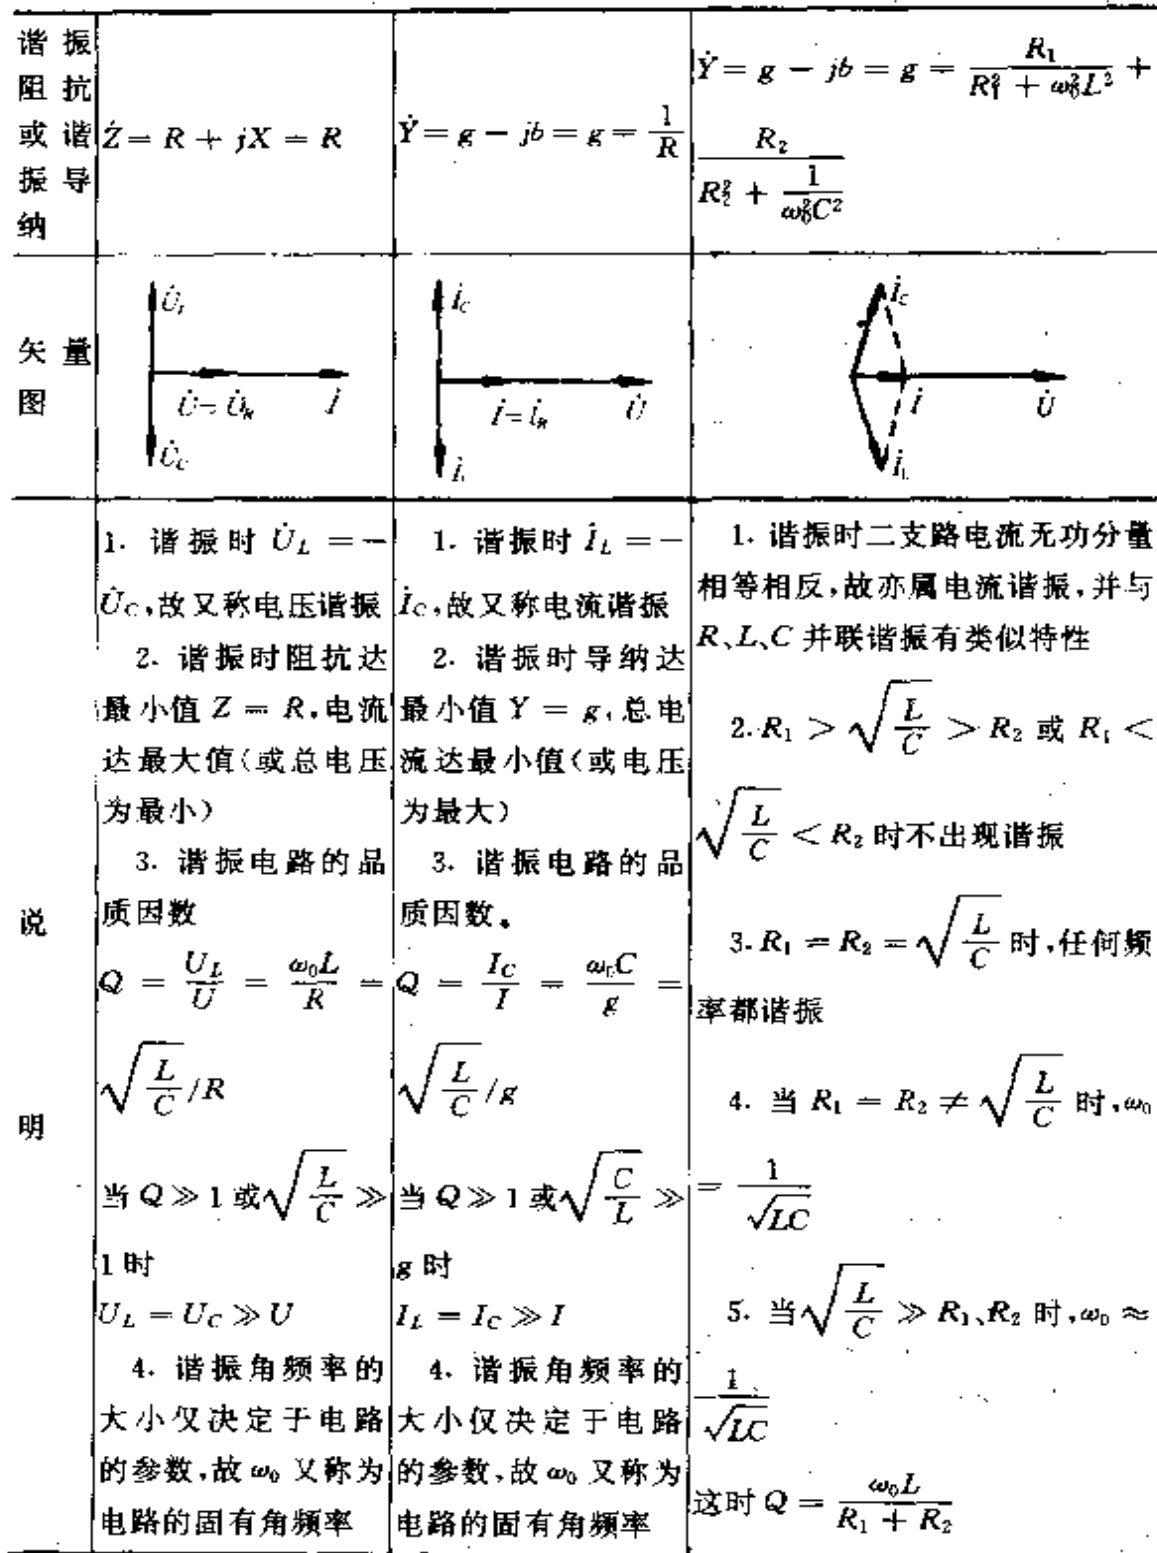 谐振阻抗或谐振导纳
Ż = R + jX = R
Ẏ = g − jb = g = 1/R
Ẏ = g − jb = g = R₁/(R₁² + ω₀²L²) +
R₂/(R₂² + 1/(ω₀²C²))
矢量图
U̇_L
U̇ = U̇_R İ
U̇_C
İ_C
İ = İ_R U̇
İ_L
İ_C
İ U̇
İ_L
说明
1. 谐振时 U̇_L = −
U̇_C,故又称电压谐振
2. 谐振时阻抗达
最小值 Z = R,电流
达最大值(或总电压
为最小)
3. 谐振电路的品
质因数
Q = U_L/U = ω₀L/R =
√(L/C)/R
当 Q ≫ 1 或√(L/C) ≫
1 时
U_L = U_C ≫ U
4. 谐振角频率的
大小仅决定于电路
的参数,故 ω₀ 又称为
电路的固有角频率
1. 谐振时 İ_L = −
İ_C,故又称电流谐振
2. 谐振时导纳达
最小值 Y = g,总电
流达最小值(或电压
为最大)
3. 谐振电路的品
质因数。
Q = I_C/I = ω₀C/g =
√(L/C)/g
当 Q ≫ 1 或√(C/L) ≫
g 时
I_L = I_C ≫ I
4. 谐振角频率的
大小仅决定于电路
的参数,故 ω₀ 又称为
电路的固有角频率
1. 谐振时二支路电流无功分量
相等相反,故亦属电流谐振,并与
R、L、C 并联谐振有类似特性
2. R₁ > √(L/C) > R₂ 或 R₁ <
√(L/C) < R₂ 时不出现谐振
3. R₁ = R₂ = √(L/C) 时,任何频
率都谐振
4. 当 R₁ = R₂ ≠ √(L/C) 时,ω₀
= 1/√(LC)
5. 当√(L/C) ≫ R₁、R₂ 时,ω₀ ≈
1/√(LC)
这时 Q = ω₀L/(R₁ + R₂)